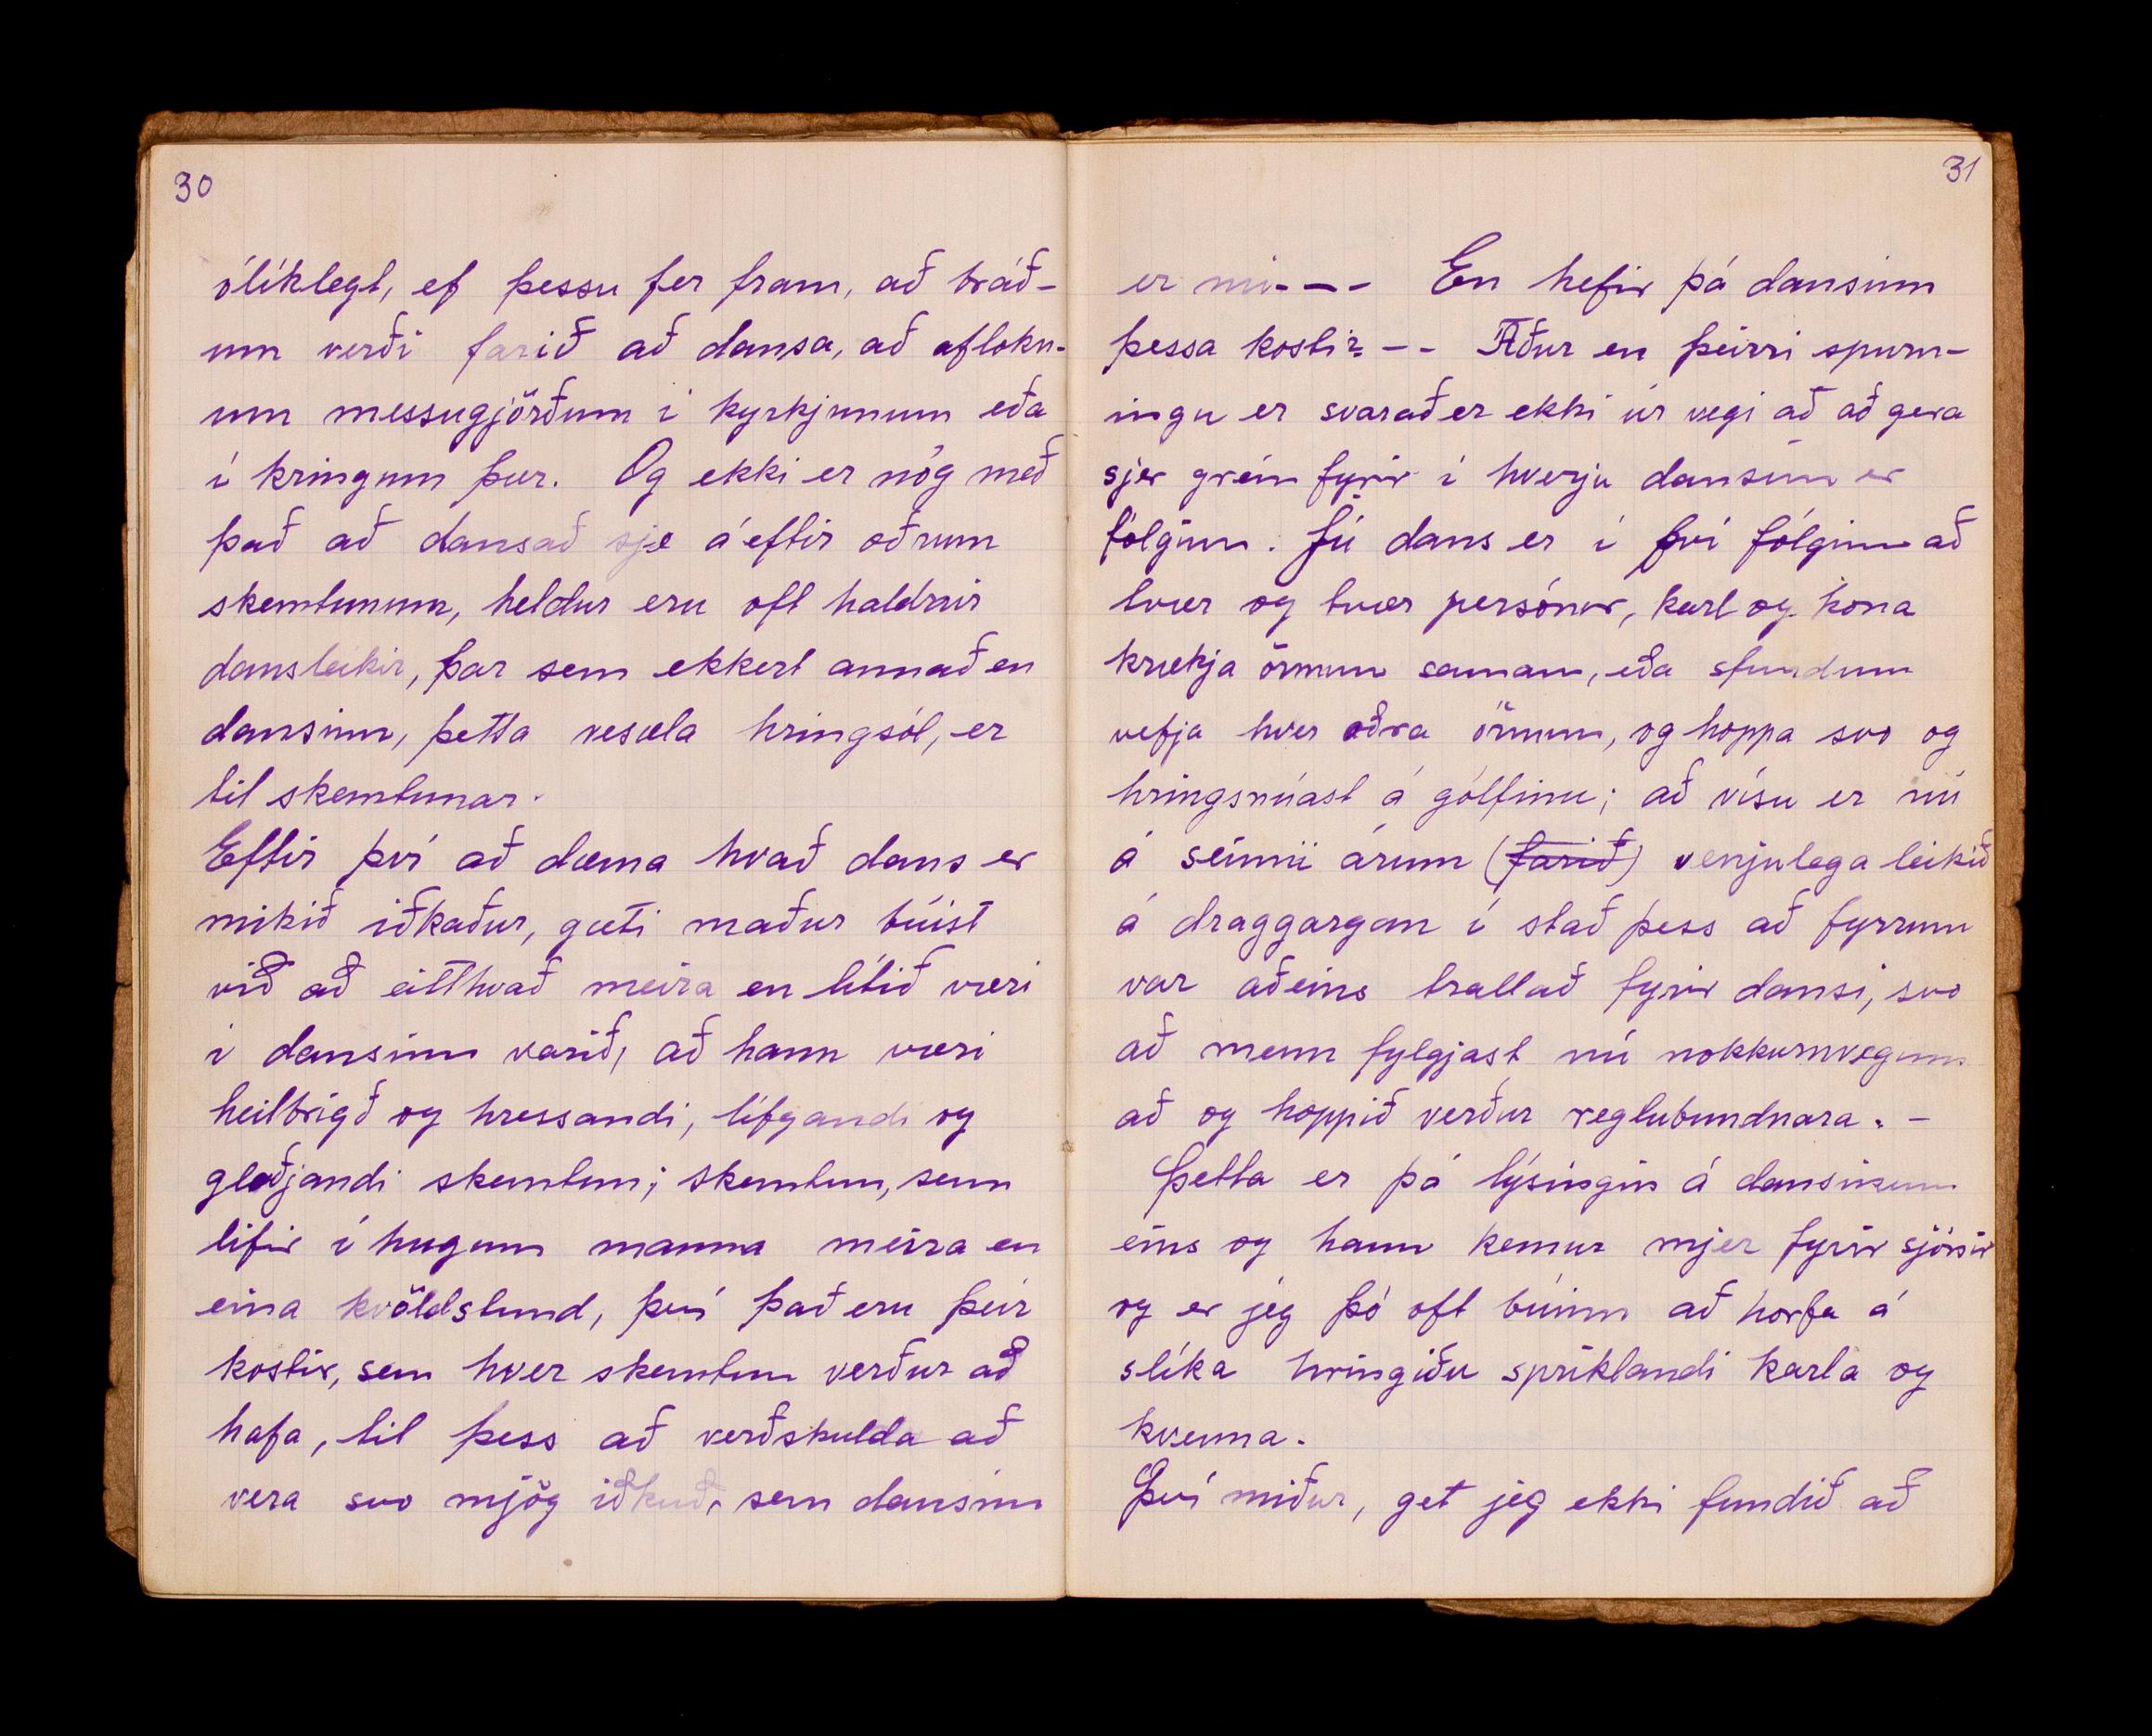 30
ólíklegt, ef þessu fer fram, að bráð-
um verði farið að dansa, að aflokn-
um messugjörðum í kyrkjunum eða
í kringum þær. Og ekki er nóg með
það að dansað sje á eftir öðrum
skemtunum, heldur eru oft haldnir
dansleikir, þar sem ekkert annað en
dansinn, þetta vesæla hringsól, er
til skemtunar.
Eftir því að dæma hvað dans er
mikið iðkaður, gæti maður búist
við að eitthvað meira en lítið væri
í dansinn varið, að hann væri
heilbrigð og hressandi, lífgandi og
gleðjandi skemtun; skemtun, sem
lifir í hugum manna meira en
eina kvöldstund, því það eru þeir
kostir, sem hver skemtun verður að
hafa, til þess að verðskulda að
vera svo mjög iðkuð, sem dansinn
31
er nú--- En hefir þá dansinn
þessa kosti?-- Áður en þeirri spurn-
ingu er svarað er ekki úr vegi að að gera
sjer grein fyrir í hverju dansinn er
fólginn. Jú dans er í því fólginn að
tvær og tvær persónur, karl og kona
krækja örmum saman, eða stundum
vefja hver aðra örmum, og hoppa svo og
hringsnúast á gólfinu; að vísu er nú
á seinni árum (farið) venjulega leikið
á draggargan í stað þess að fyrrum
var aðeins trallað fyrir dansi, svo
að menn fylgjast nú nokkurnvegin
að og hoppið verður reglubundnara. -
Þetta er þá lýsingin á dansinum
eins og hann kemur mjer fyrir sjónir
og er jeg þó oft búinn að horfa á
slíka hringiðu spriklandi karla og
kvenna.
Því miður, get jeg ekki fundið að